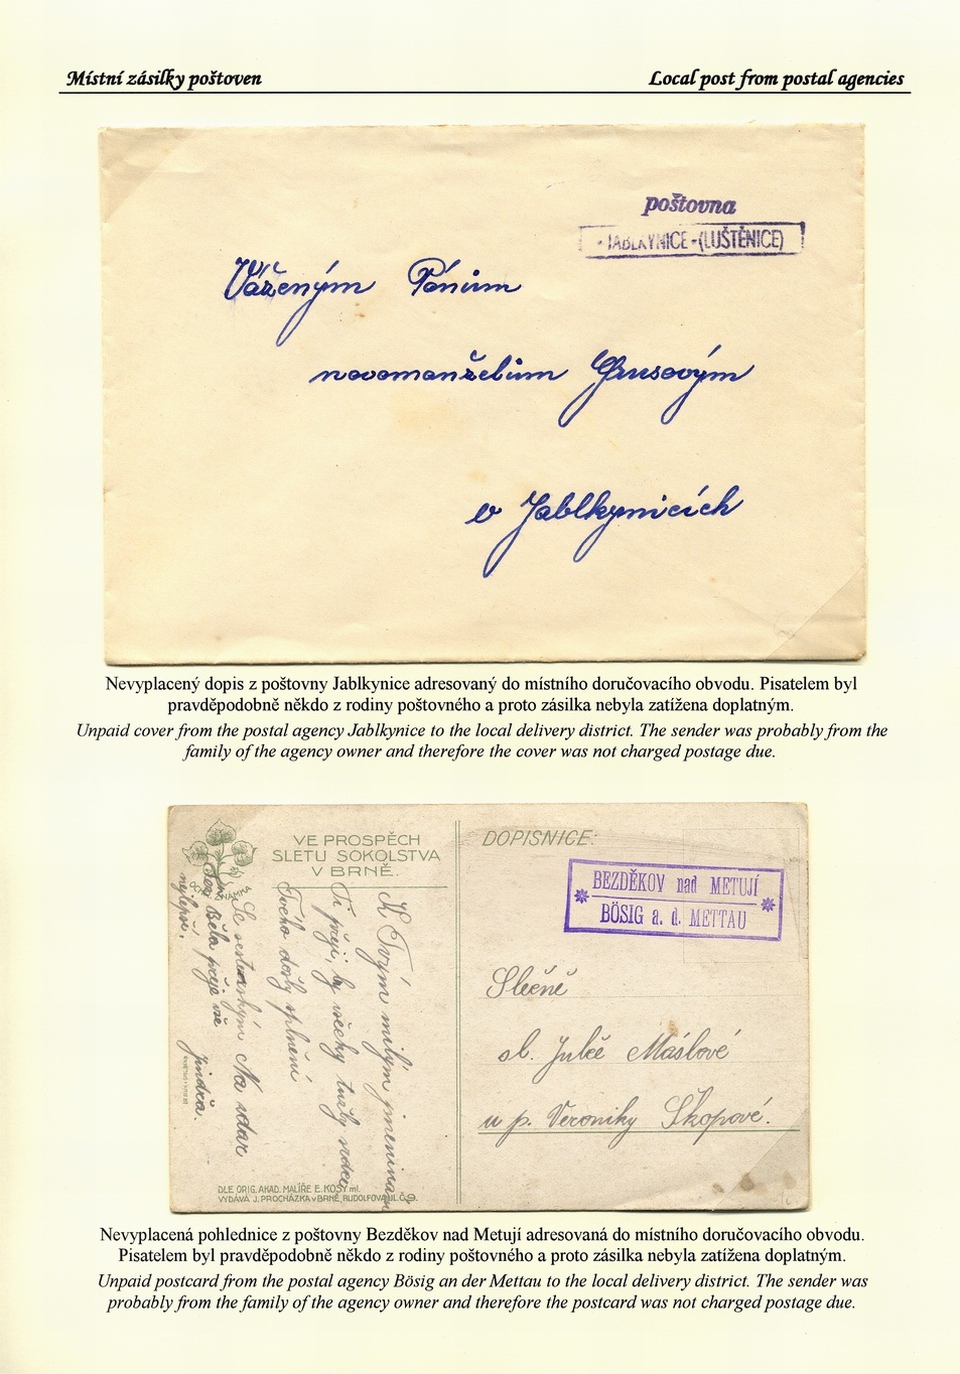 Místní zásilky poštoven
Local post from postal agencies
poštovna
JABLKYNICE-(LUŠTĚNICE)
Váženým Pánům
novomanželům Grusovým
v Jablkynicích
Nevyplacený dopis z poštovny Jablkynice adresovaný do místního doručovacího obvodu. Pisatelem byl
pravděpodobně někdo z rodiny poštovného a proto zásilka nebyla zatížena doplatným.
Unpaid cover from the postal agency Jablkynice to the local delivery district. The sender was probably from the
family of the agency owner and therefore the cover was not charged postage due.
VE PROSPĚCH
SLETU SOKOLSTVA
V BRNĚ.
K Tvým milým jmeninám
Ti přeji, by všecky tužby srdce
Tvého došly splnění
Se sesterským Na zdar
Jindra.
Též Běla přeje vše
nejlepší.
DLE ORIG. AKAD. MALÍŘE E. KOSY ml.
VYDÁVÁ J. PROCHÁZKA v BRNĚ, RUDOLFOVA UL. Č. 9.
DOPISNICE:
BEZDĚKOV nad METUJÍ
BÖSIG a. d. METTAU
Slečně
sl. Julče Máslové
u p. Veroniky Škopové.
Nevyplacená pohlednice z poštovny Bezděkov nad Metují adresovaná do místního doručovacího obvodu.
Pisatelem byl pravděpodobně někdo z rodiny poštovného a proto zásilka nebyla zatížena doplatným.
Unpaid postcard from the postal agency Bösig an der Mettau to the local delivery district. The sender was
probably from the family of the agency owner and therefore the postcard was not charged postage due.